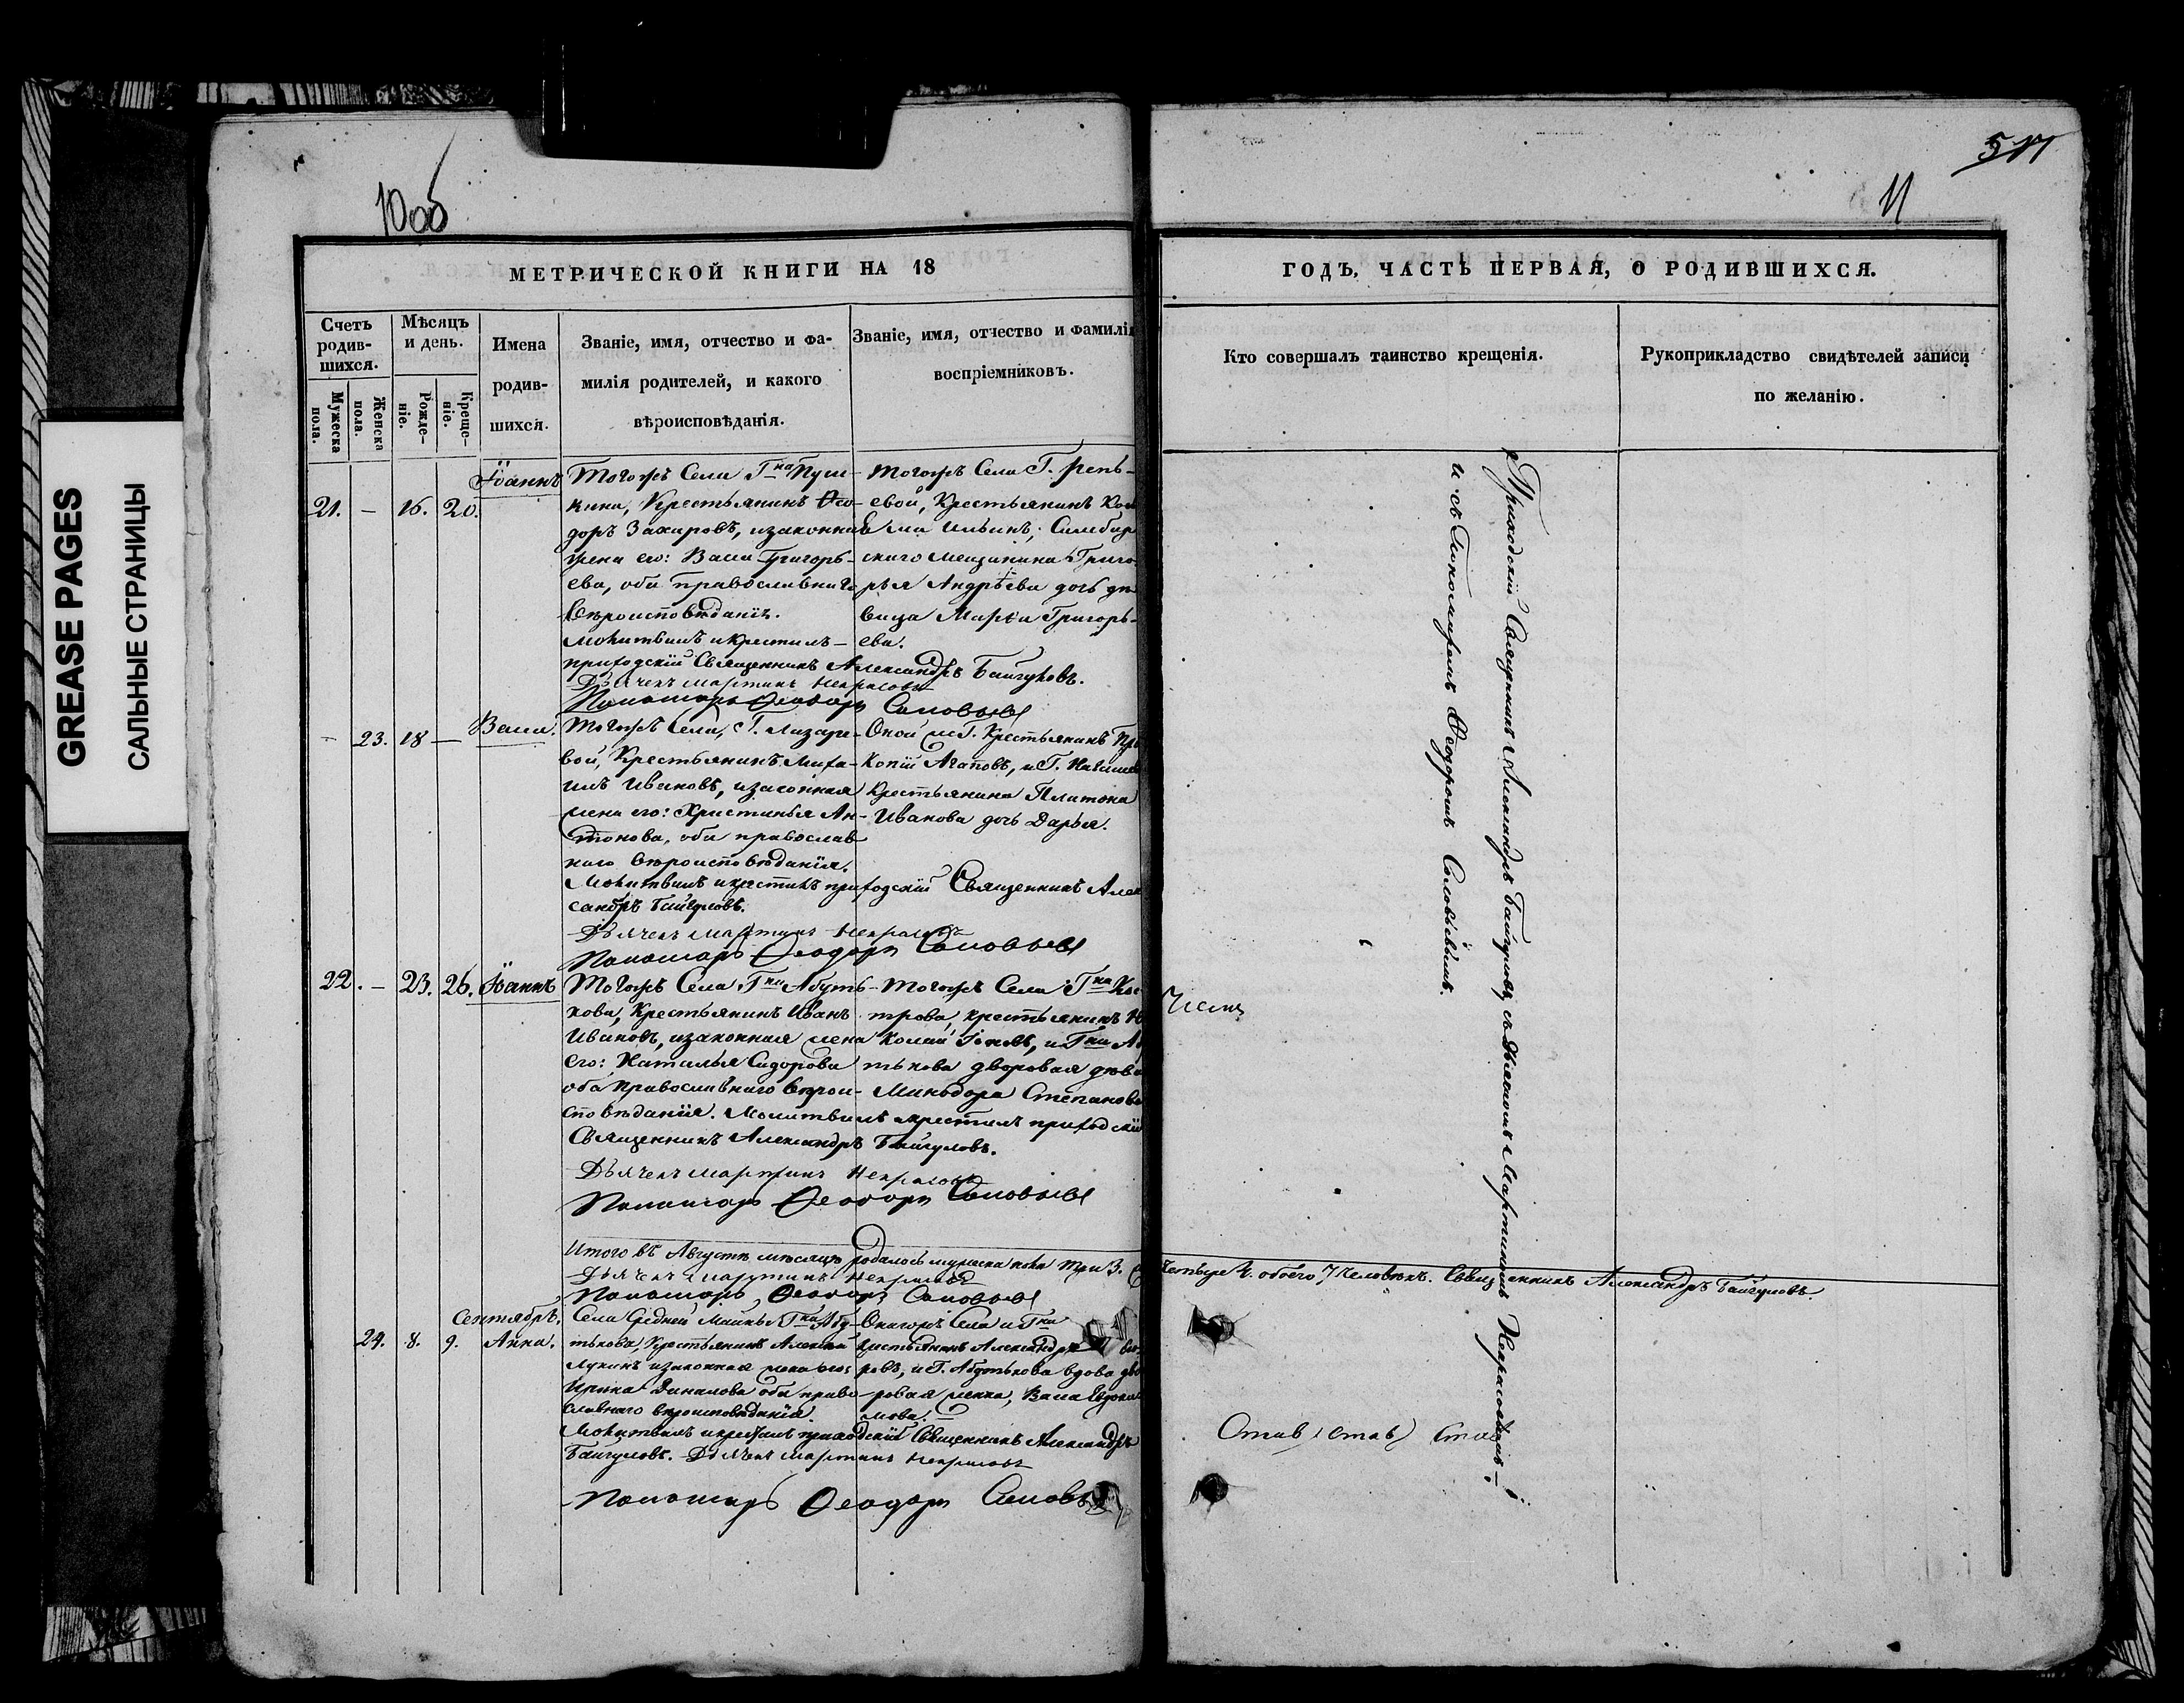 GREASE PAGES
САЛЬНЫЕ СТРАНИЦЫ
10об
511
11
МЕТРИЧЕСКОЙ КНИГИ НА 18
ГОДЪ, ЧАСТЬ ПЕРВАЯ, О РОДИВШИХСЯ.
Счетъ родив-шихся.
Мужеска пола.
Женска пола.
Мѣсяцъ и день.
Рожде-ніе.
Креще-ніе.
Имена родив-шихся.
Званіе, имя, отчество и фа-
милія родителей, и какого
вѣроисповѣданія.
Званіе, имя, отчество и фамилія
воспріемниковъ.
Кто совершалъ таинство крещенія.
Рукоприкладство свидѣтелей записи
по желанію.
21. – 16. 20. Іоаннъ
Тогожъ Села Гна Пуш-
кина, Крестьянинъ Ѳео-
доръ Захаровъ, изаконная
жена его: Васса Григорь-
ева, оба православнаго
вѣроисповѣданія.
Молитвилъ и крестилъ
приходскій Священникъ Александръ Байгуловъ.
Дьячекъ Мартинъ Некрасовъ
Пономарь Ѳеодоръ Соловьевъ
Тогожъ Села Г. Репь-
евой, Крестьянинъ
Ильинъ; Симбир
скаго мещанина Григо
рья Андрѣева дочь дѣ
вица Марѳа Григорь-
ева.
– 23. 18 – Васса.
Тогожъ Села, Г. Лазаре-
вой, Крестьянинъ Миха-
илъ Ивановъ, изаконная
жена его: Христинья Ан-
тонова, оба православ
наго вѣроисповѣданія.
Молитвилъ и крестилъ приходскій Священникъ Алек
сандръ Байгуловъ.
Дьячекъ Мартинъ Некрасовъ
Пономарь Ѳеодоръ Соловьевъ
Крестьянинъ Про
копій Агаповъ, и Г.
Крестьянина Платона
Иванова дочь Дарья.
22. – 23. 26. Іоаннъ
Тогожъ Села, Гна Абуть-
кова, Крестьянинъ Иванъ
Ивановъ, изаконная жена
его: Наталья Сидорова
оба православнаго вѣрои-
сповѣданія. Молитвилъ и крестилъ приходскій
Священникъ Александръ Байгуловъ.
Дьячекъ Мартинъ Некрасовъ
Пономарь Ѳеодоръ Соловьевъ
Тогожъ Села Гна
трова, крестьянинъ Ни
колай и Гна Абу
тькова дворовая дѣви
Минодора Степанова
Итого въ Августѣ мѣсяцѣ родилось мужеска пола три 3.
четыре 4. обоего 7 человѣкъ. Священникъ Александръ Байгуловъ.
Дьячекъ Мартинъ Некрасовъ
Пономарь Ѳеодоръ Соловьевъ
Сентябрь.
24. 8. 9. Анна.
Села Средней Майны Гна Абу-
тькова, Крестьянинъ Алексѣй
Лукинъ изаконная жена его:
Ирина Данилова оба право-
славнаго вѣроисповѣданія.
Молитвилъ и крестилъ приходскій Священникъ Александръ
Байгуловъ. Дьячекъ Мартинъ Некрасовъ
Пономарь Ѳеодоръ Соловьевъ
Онагожъ Села и Гна
Крестьянинъ Александръ
и Г. Абутькова вдова дво
ровая женка, Васса Евдоки
мова.
Приходскій Священникъ Александръ Байгуловъ, съ Дьячкомъ Мартиномъ Некрасовымъ –
и съ Пономаремъ Ѳеодоромъ Соловьевымъ.
Став (став) Став